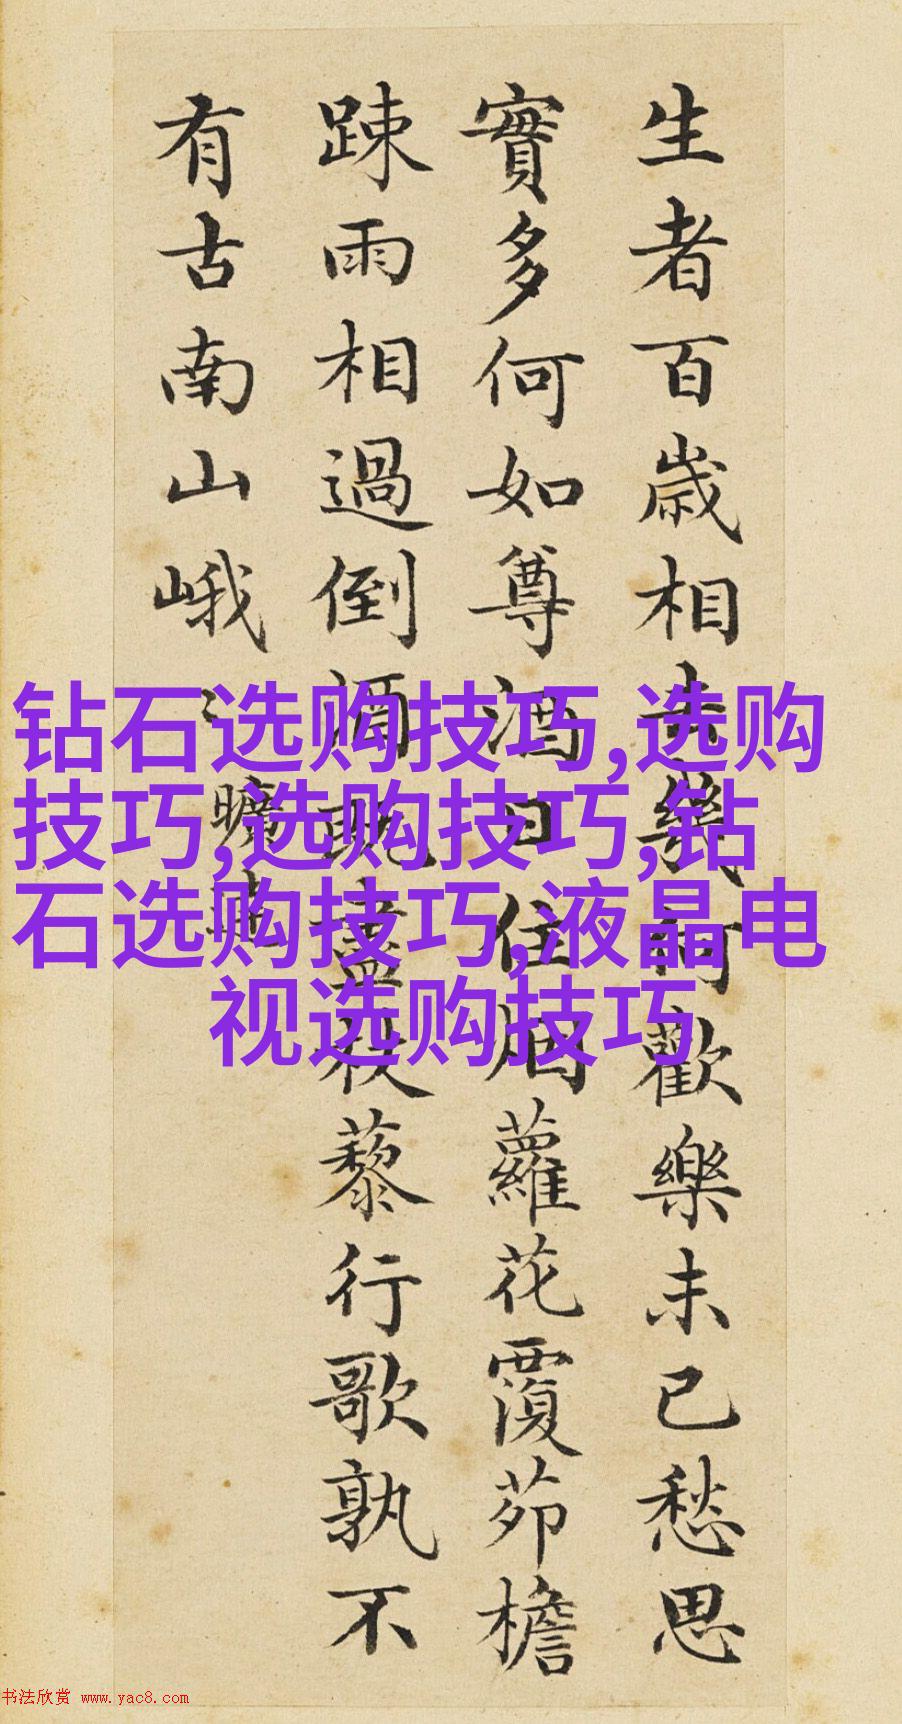 生者百歳相去幾何歡樂未已愁思
實多何如尊酒日住烟蘿花覆茆檐
踈雨相過倒酒既盡杖藜行歌孰不
有古南山峨〻
曠達
钻石选购技巧,选购
技巧,选购技巧,钻
石选购技巧,液晶电
视选购技巧
书法欣赏 www.yac8.com